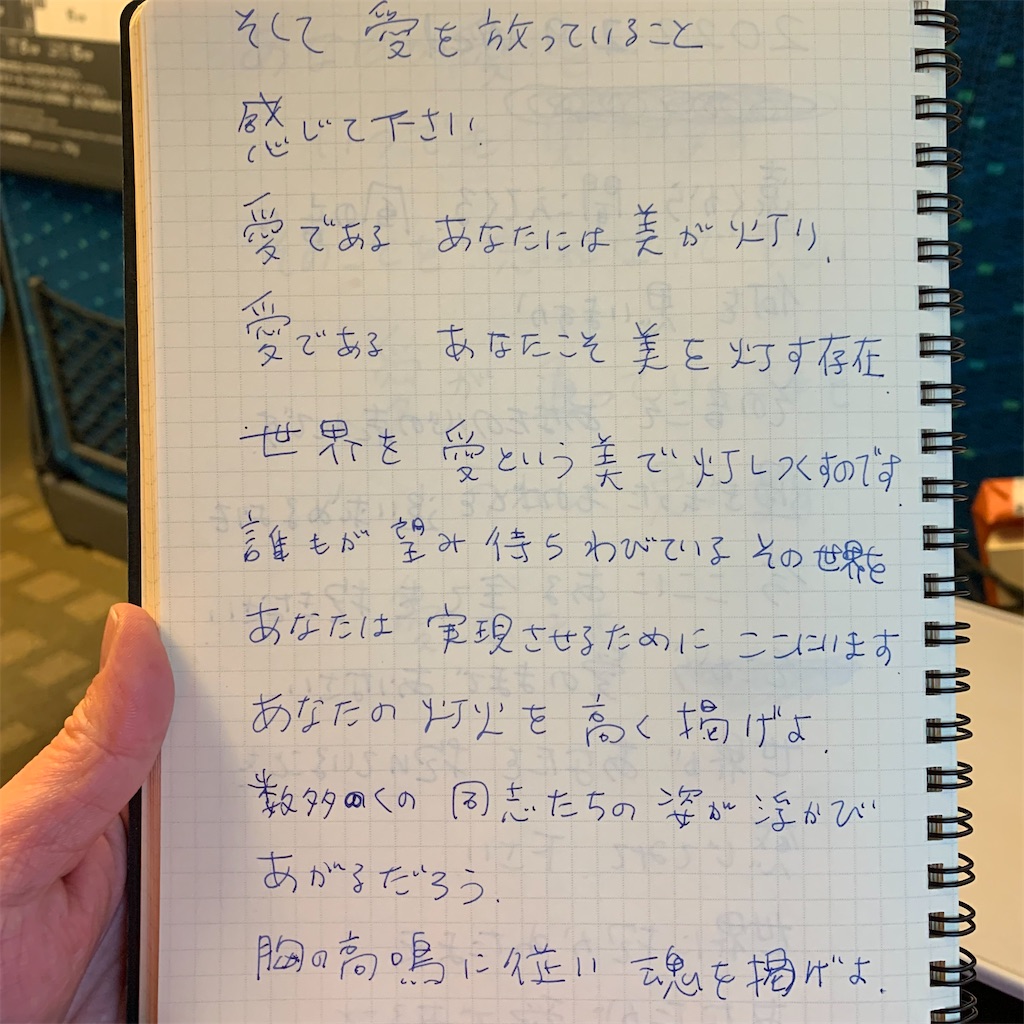 そして 愛を放っていること
感じて下さい.
愛である あなたには美が灯り.
愛である あなたこそ 美を灯す存在
世界を 愛という美で灯しつくすのです
誰もが望み待ちわびている その世界を
あなたは 実現させるために ここにいます
あなたの灯火を 高く掲げよ.
数多くの 同志たちの 姿が浮かび
あがるだろう.
胸の高鳴に従い 魂を掲げよ.